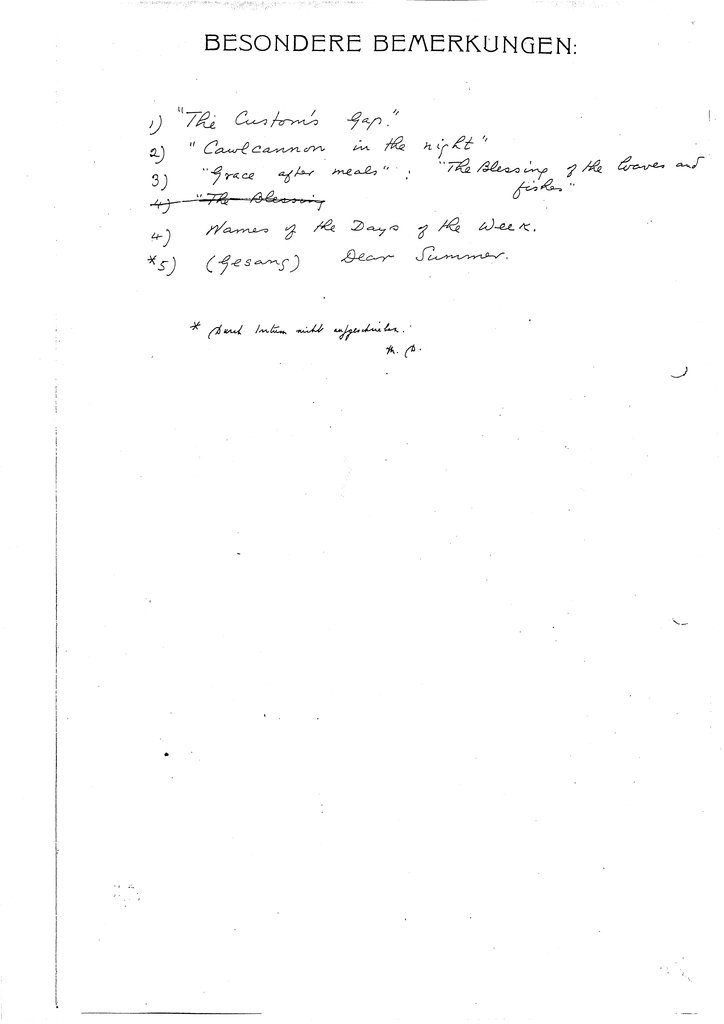 BESONDERE BEMERKUNGEN:
1) "The Custom's Gap."
2) "Cawlcannon in the night"
3) "Grace after meals"; "The Blessing of the loaves and
fishes"
4) "The Blessing
4) Names of the Days of the Week.
*5) (Gesang) Dear Summer.
* Durch Irrtum nicht aufgeschrieben.